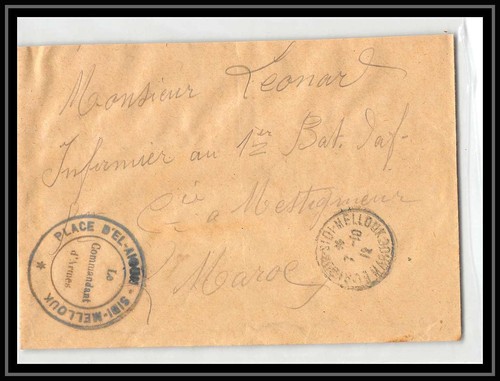 Monsieur Leonard
Infirmier au 1er Bat. d'af
Cie a Mestegmeur
Maroc
PLACE D'EL-AIOUN - SIDI-MELLOUK
Le
Commandant
d'Armes
SIDI-MELLOUK
7 -10
12